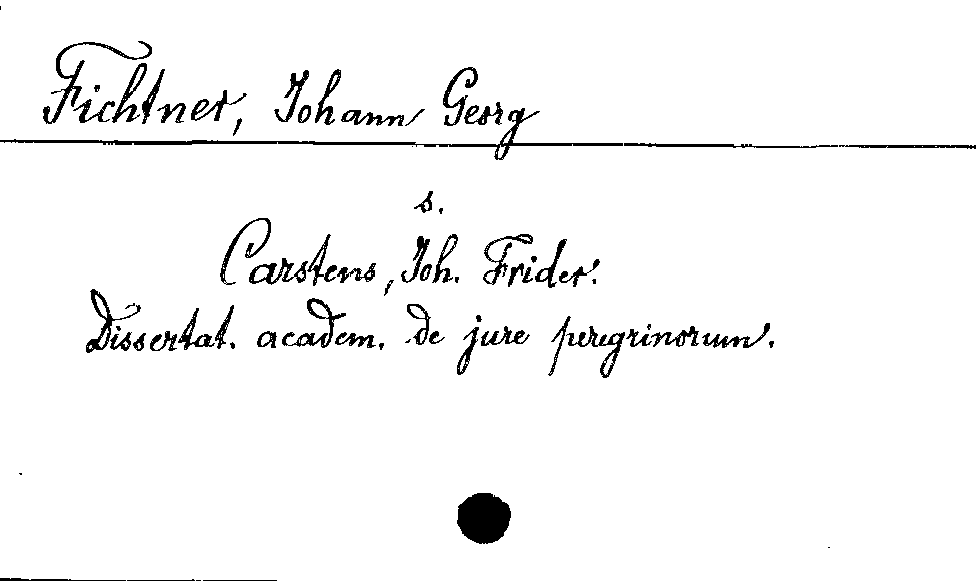 Fichtner, Johann Georg
s.
Carstens, Joh. Frider.
Dissertat. academ. de jure peregrinorum.